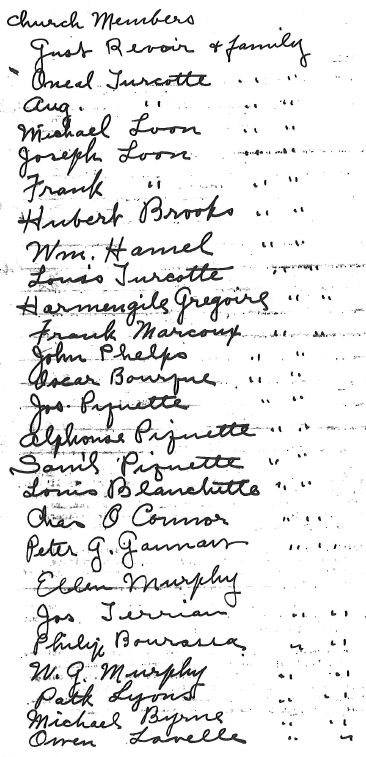 Church Members
Gust Revoir & family
Oneal Turcotte " "
Aug. " " "
Michael Loon " "
Joseph Loon " "
Frank " " "
Hubert Brooks " "
Wm. Hamel " "
Louis Turcotte " "
Harmengile Gregoire " "
Frank Marcoux " "
John Phelps " "
Oscar Bourque " "
Jos. Piquette " "
Alphonse Piquette " "
Sam'l Piquette " "
Louis Blanchette " "
Chas O Connor " "
Peter G. " "
Ellen Murphy
Jos Terrian " "
Philip Bourassa " "
W. G. Murphy " "
Patk Lyons " "
Michael Byrne " "
Owen Lavelle " "